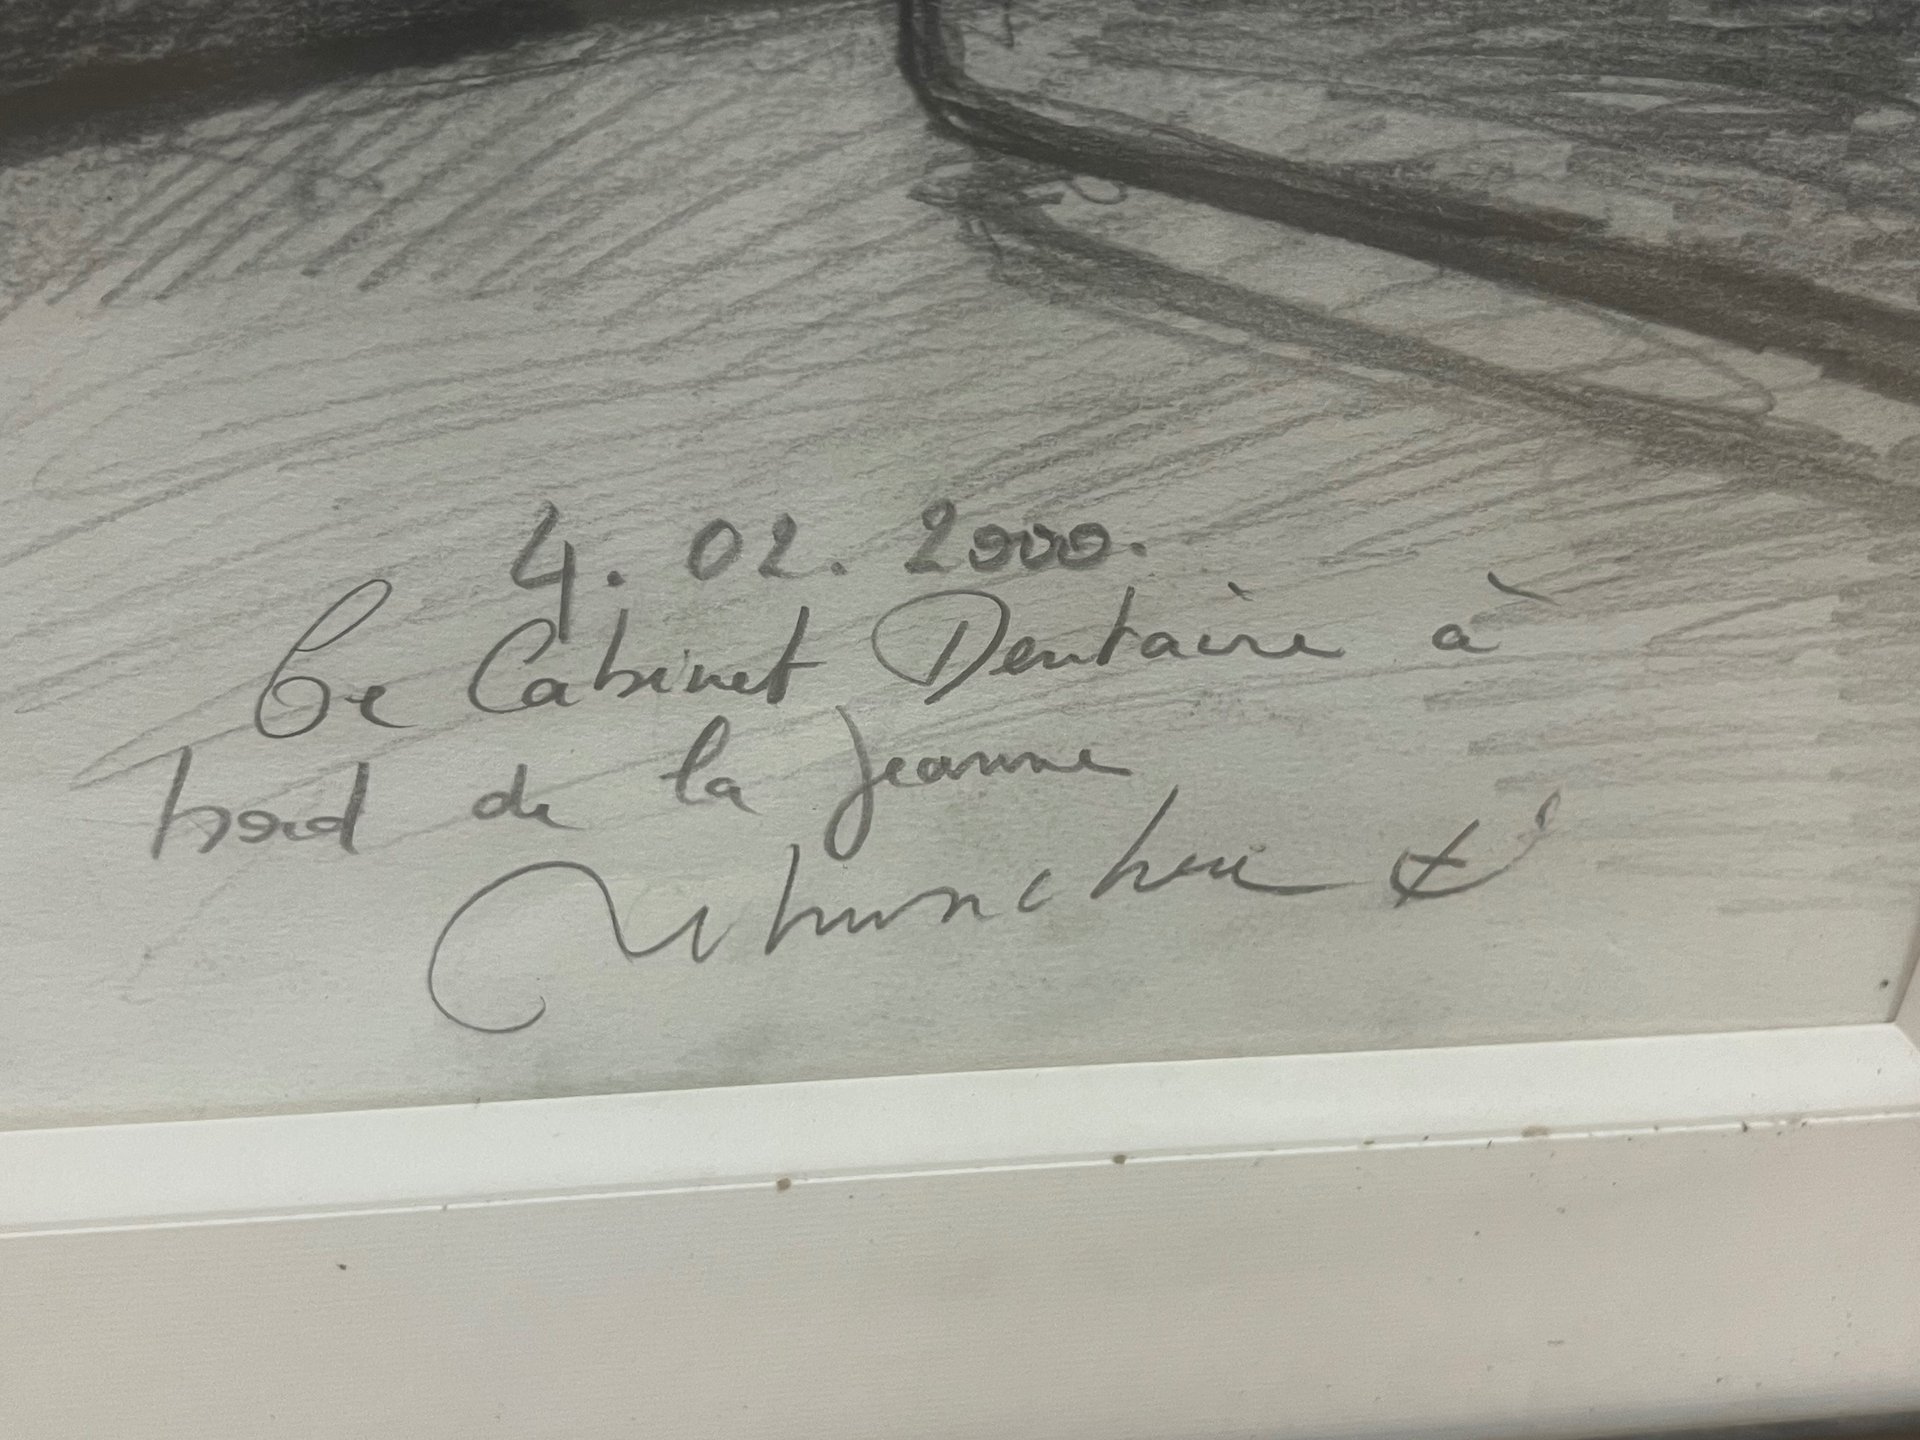 4.02.2000.
Le Cabinet Dentaire à
bord de la Jeanne